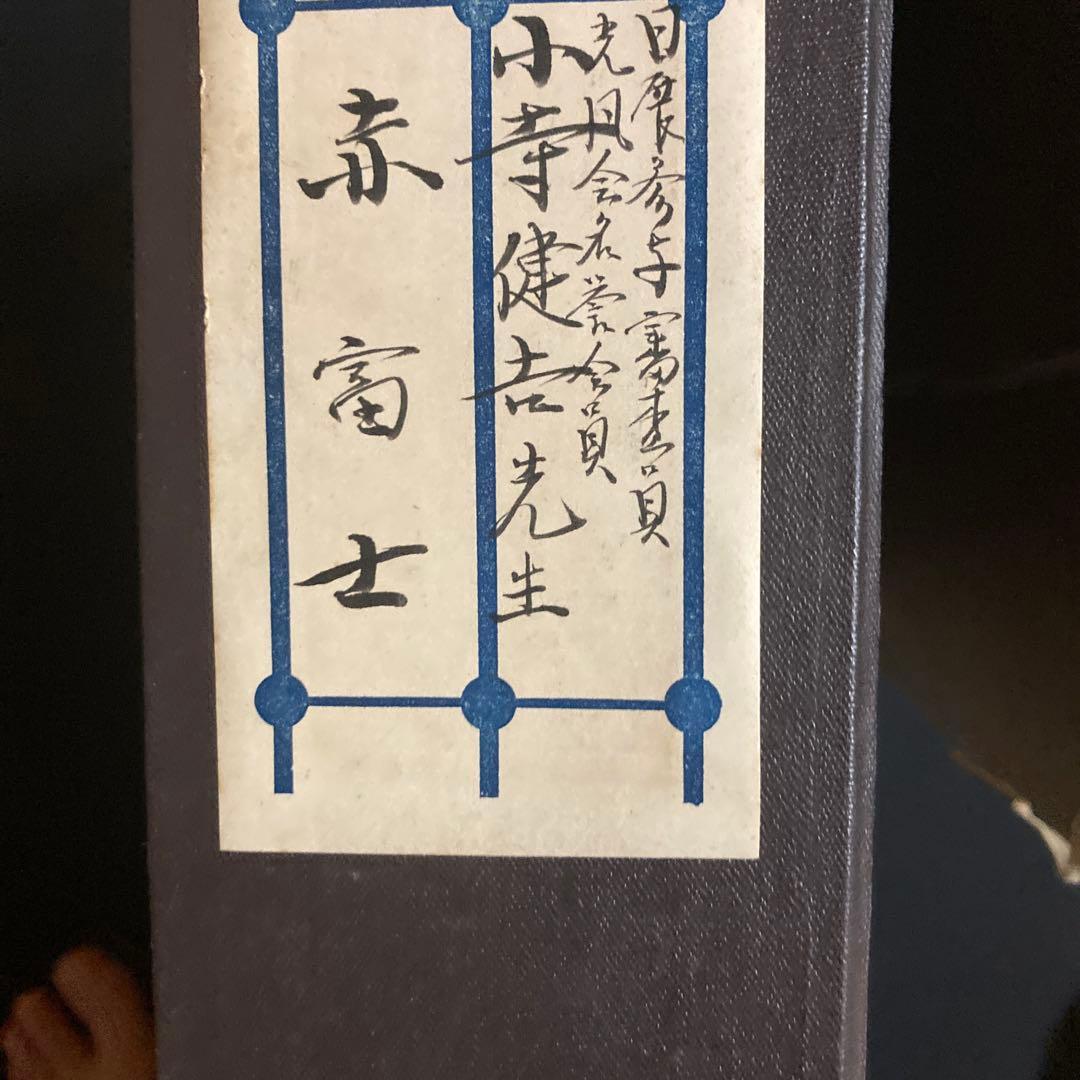 日展参与審査員
光風会名誉会員
小寺健吉先生
赤富士